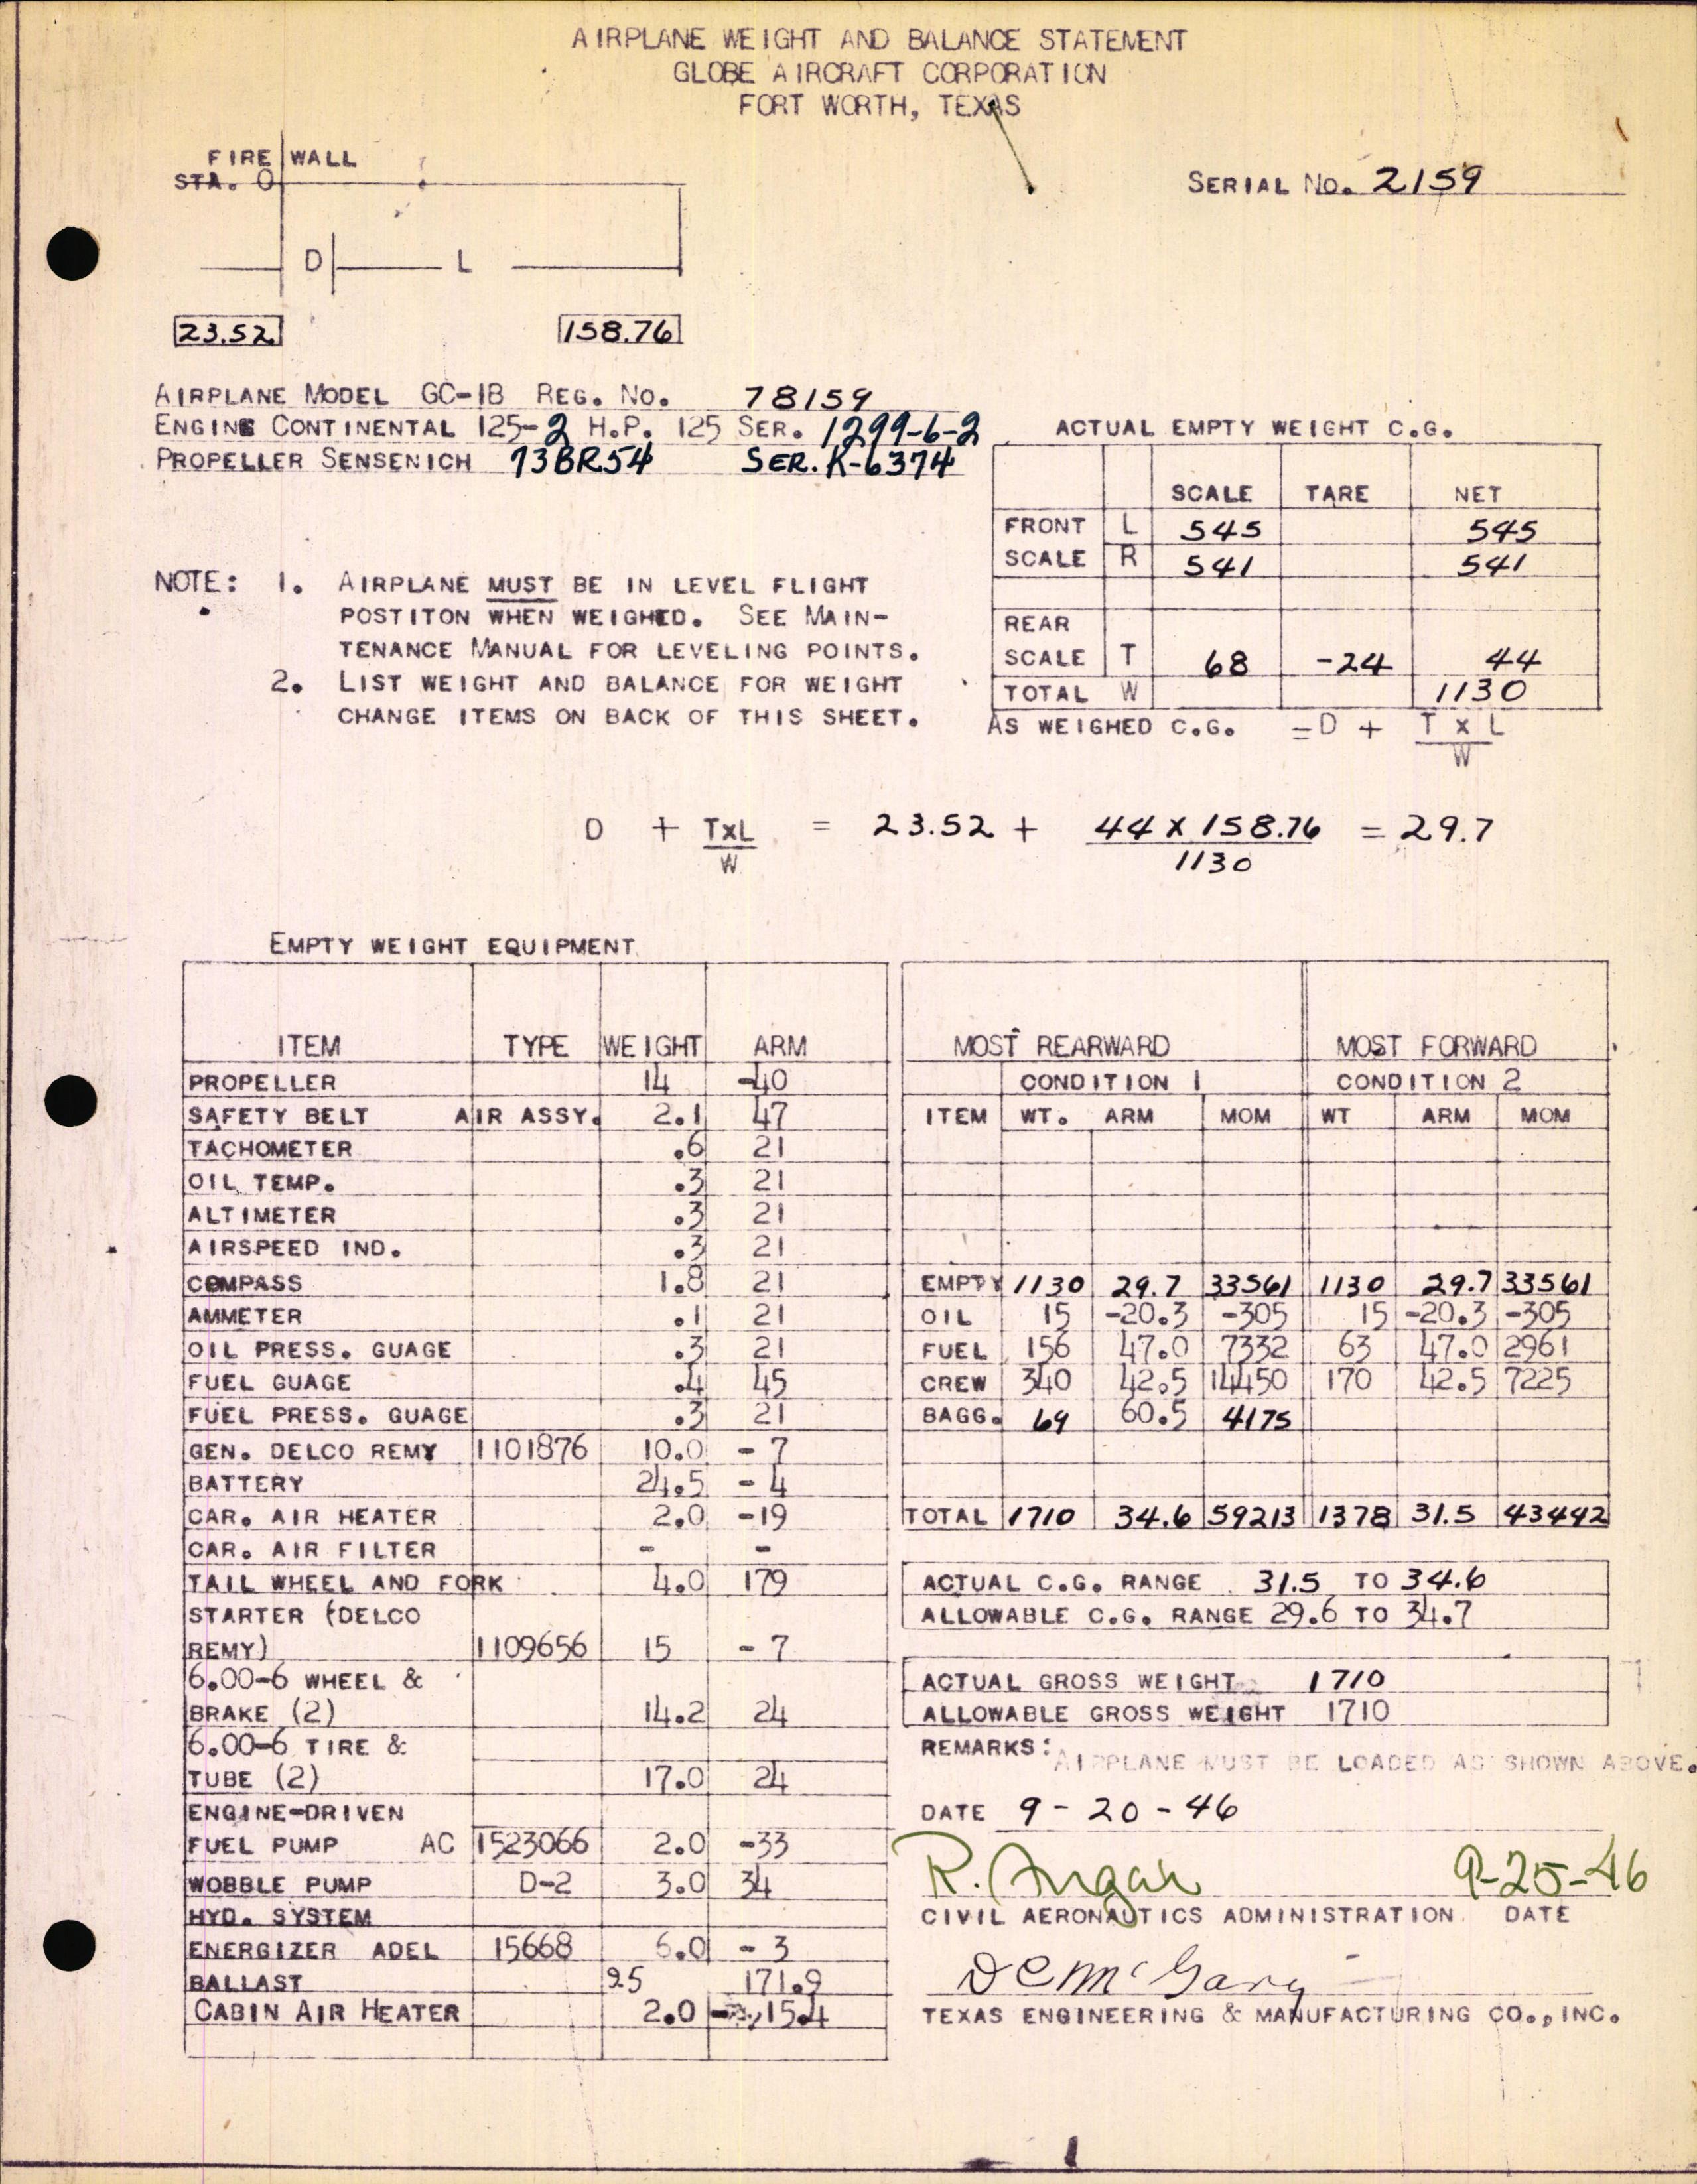 AIRPLANE WEIGHT AND BALANCE STATEMENT
GLOBE AIRCRAFT CORPORATION
FORT WORTH, TEXAS
FIRE WALL
STA. O
SERIAL NO. 2159
D L
23.52 158.76
AIRPLANE MODEL GC-1B REG. NO. 78159
ENGINE CONTINENTAL 125-2 H.P. 125 SER. 1299-6-2
PROPELLER SENSENICH 73BR54 SER. K-6374
ACTUAL EMPTY WEIGHT C.G.
SCALE TARE NET
FRONT L 545 545
SCALE R 541 541
REAR
SCALE T 68 -24 44
TOTAL W 1130
AS WEIGHED C.G. = D + T X L
W
NOTE: 1. AIRPLANE MUST BE IN LEVEL FLIGHT
POSTITON WHEN WEIGHED. SEE MAIN-
TENANCE MANUAL FOR LEVELING POINTS.
2. LIST WEIGHT AND BALANCE FOR WEIGHT
CHANGE ITEMS ON BACK OF THIS SHEET.
D + TXL = 23.52 + 44 X 158.76 = 29.7
W 1130
EMPTY WEIGHT EQUIPMENT
ITEM TYPE WEIGHT ARM
PROPELLER 14 -40
SAFETY BELT AIR ASSY. 2.1 47
TACHOMETER .6 21
OIL TEMP. .3 21
ALTIMETER .3 21
AIRSPEED IND. .3 21
COMPASS 1.8 21
AMMETER .1 21
OIL PRESS. GUAGE .3 21
FUEL GUAGE .4 45
FUEL PRESS. GUAGE .3 21
GEN. DELCO REMY 1101876 10.0 - 7
BATTERY 24.5 - 4
CAR. AIR HEATER 2.0 -19
CAR. AIR FILTER - -
TAIL WHEEL AND FORK 4.0 179
STARTER (DELCO
REMY) 1109656 15 - 7
6.00-6 WHEEL &
BRAKE (2) 14.2 24
6.00-6 TIRE &
TUBE (2) 17.0 24
ENGINE-DRIVEN
FUEL PUMP AC 1523066 2.0 -33
WOBBLE PUMP D-2 3.0 34
HYD. SYSTEM
ENERGIZER ADEL 15668 6.0 - 3
BALLAST 9.5 171.9
CABIN AIR HEATER 2.0 -15.4
MOST REARWARD MOST FORWARD
CONDITION 1 CONDITION 2
ITEM WT. ARM MOM WT ARM MOM
EMPTY 1130 29.7 33561 1130 29.7 33561
OIL 15 -20.3 -305 15 -20.3 -305
FUEL 156 47.0 7332 63 47.0 2961
CREW 340 42.5 14450 170 42.5 7225
BAGG. 69 60.5 4175
TOTAL 1710 34.6 59213 1378 31.5 43442
ACTUAL C.G. RANGE 31.5 TO 34.6
ALLOWABLE C.G. RANGE 29.6 TO 34.7
ACTUAL GROSS WEIGHT 1710
ALLOWABLE GROSS WEIGHT 1710
REMARKS: AIRPLANE MUST BE LOADED AS SHOWN ABOVE.
DATE 9-20-46
R. 9-25-46
CIVIL AERONAUTICS ADMINISTRATION DATE
McGary
TEXAS ENGINEERING & MANUFACTURING CO., INC.
1